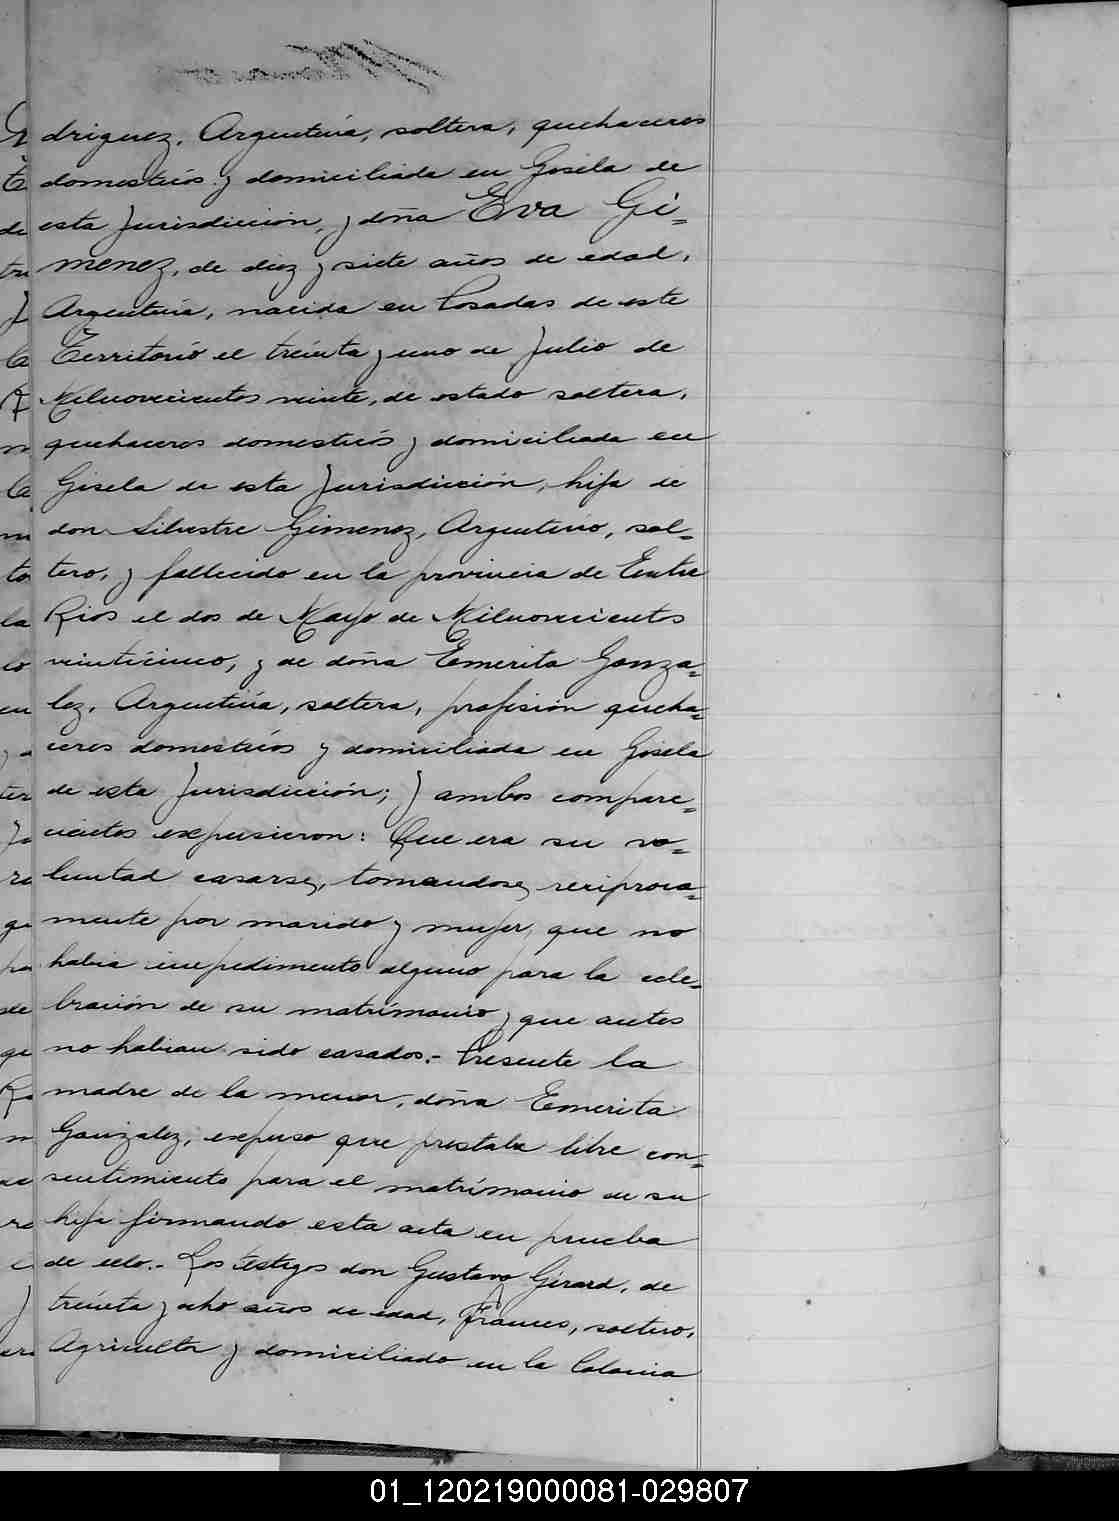 driguez, Argentina, soltera, quehaceres
domesticos y domiciliada en Gisela de
esta Jurisdicción, y doña Eva Gi=
menez, de diez y siete años de edad,
Argentina, nacida en Posadas de este
Territorio el treinta y uno de Julio de
Milnovecientos veinte, de estado soltera,
quehaceres domesticos y domiciliada en
Gisela de esta Jurisdicción, hija de
don Silvestre Gimenez, Argentino, sol=
tero, y fallecido en la provincia de Entre
Rios el dos de Mayo de Milnovecientos
veinticinco, y de doña Emerita Gonza=
lez, Argentina, soltera, profisión queha=
ceres domesticos y domiciliada en Gisela
de esta Jurisdicción; y ambos compare=
cientes expusieron: Que era su vo=
luntad casarse, tomandose reciproca=
mente por marido y mujer, que no
habia impedimento alguno para la cele=
bración de su matrimonio y que antes
no habian sido casados.- Presente la
madre de la menor, doña Emerita
Gonzalez, expuso que prestaba libre con=
sentimiento para el matrimonio de su
hija firmando esta acta en prueba
de ello.- Los testigos don Gustavo Girard, de
treinta y ocho años de edad, Frances, soltero,
Agricultor y domiciliado en la Colonia
01_120219000081-029807